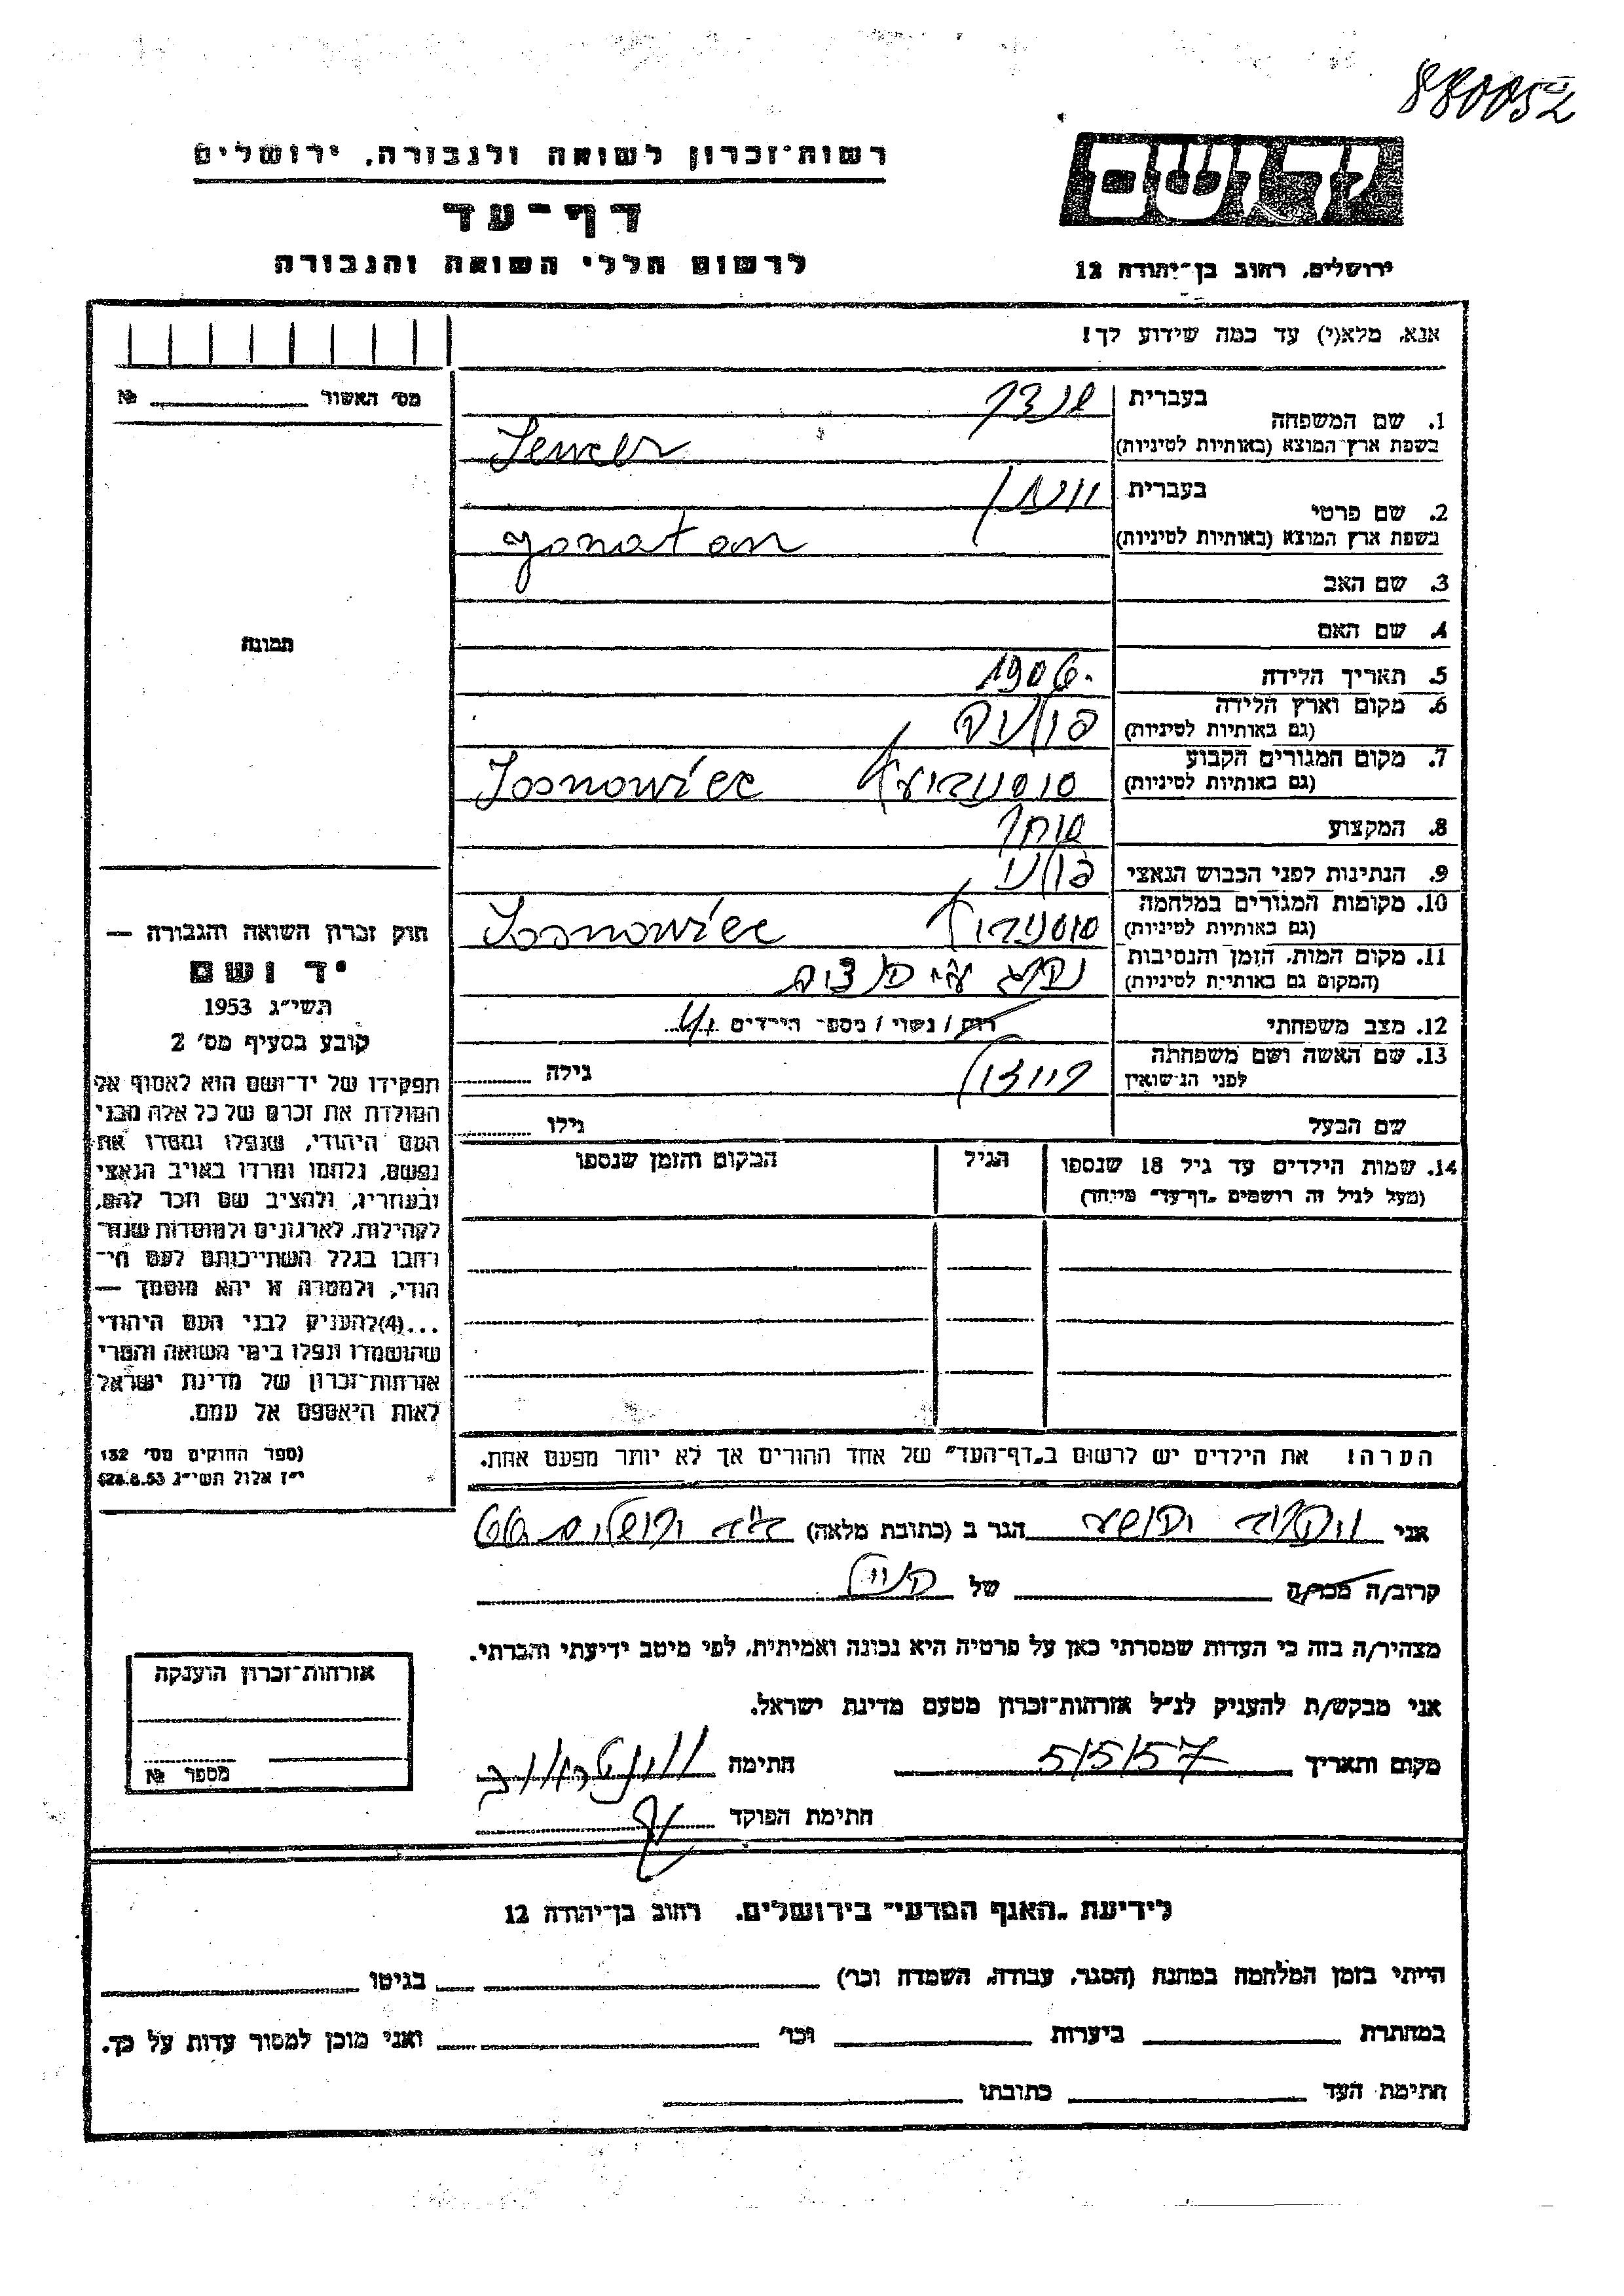 880052
רשות־זכרון לשואה ולגבורה, ירושלים
דף־עד
לרשום חללי השואה והגבורה
יד ושם
ירושלים, רחוב בן־יהודה 12
אנא, מלא(י) עד כמה שידוע לך!
מס׳ האשור №
1. שם המשפחה
בעברית
בשפת ארץ המוצא (באותיות לטיניות)
2. שם פרטי
בעברית יונתן
בשפת ארץ המוצא (באותיות לטיניות) Jonatan
3. שם האב
4. שם האם
תמונה
5. תאריך הלידה 1906.
6. מקום וארץ הלידה
(גם באותיות לטיניות) פולניה
7. מקום המגורים הקבוע
(גם באותיות לטיניות) Sosnowiec
8. המקצוע סוחר
9. הנתינות לפני הכבוש הנאצי פולני
10. מקומות המגורים במלחמה
(גם באותיות לטיניות) Sosnowiec
11. מקום המות, הזמן והנסיבות
(המקום גם באותיות לטיניות) נהרג ע״י
12. מצב משפחתי רוק / נשוי / מספר הילדים
13. שם האשה ושם משפחתה
לפני הנישואין
גילה
שם הבעל גילו
14. שמות הילדים עד גיל 18 שנספו
(מעל לגיל זה רושמים „דף־עד״ מיוחד)
הגיל
המקום והזמן שנספו
הערה! את הילדים יש לרשום ב„דף־העד״ של אחד ההורים אך לא יותר מפעם אחת.
חוק זכרון השואה והגבורה —
יד ושם
תשי״ג 1953
קובע בסעיף מס׳ 2
תפקידו של יד־ושם הוא לאסוף אל
המולדת את זכרם של כל אלה מבני
העם היהודי, שנפלו ומסרו את
נפשם, נלחמו ומרדו באויב הנאצי
ובעוזריו, ולהציב שם וזכר להם,
לקהילות, לארגונים ולמוסדות שנח־
רבו בגלל השתייכותם לעם הי־
הודי, ולמטרה זו יהא מוסמך —
...(4) להעניק לבני העם היהודי
שהושמדו ונפלו בימי השואה והמרי
אזרחות־זכרון של מדינת ישראל
לאות היאספם אל עמם.
(ספר החוקים מס׳ 132
י״ז אלול תשי״ג 28.8.53)
אני הגר ב (כתובת מלאה)
קרוב/ה מכר/ה של
מצהיר/ה בזה כי העדות שמסרתי כאן על פרטיה היא נכונה ואמיתית, לפי מיטב ידיעתי והכרתי.
אני מבקש/ת להעניק לנ״ל אזרחות־זכרון מטעם מדינת ישראל.
מקום ותאריך 5/5/57 חתימה
חתימת הפוקד
אזרחות־זכרון הוענקה
מספר №
לידיעת „האגף המדעי״ בירושלים, רחוב בן־יהודה 12
הייתי בזמן המלחמה במחנה (הסגר, עבודה, השמדה וכו׳) בגיטו
במחתרת ביערות וכו׳ ואני מוכן למסור עדות על כך.
חתימת העד כתובתו